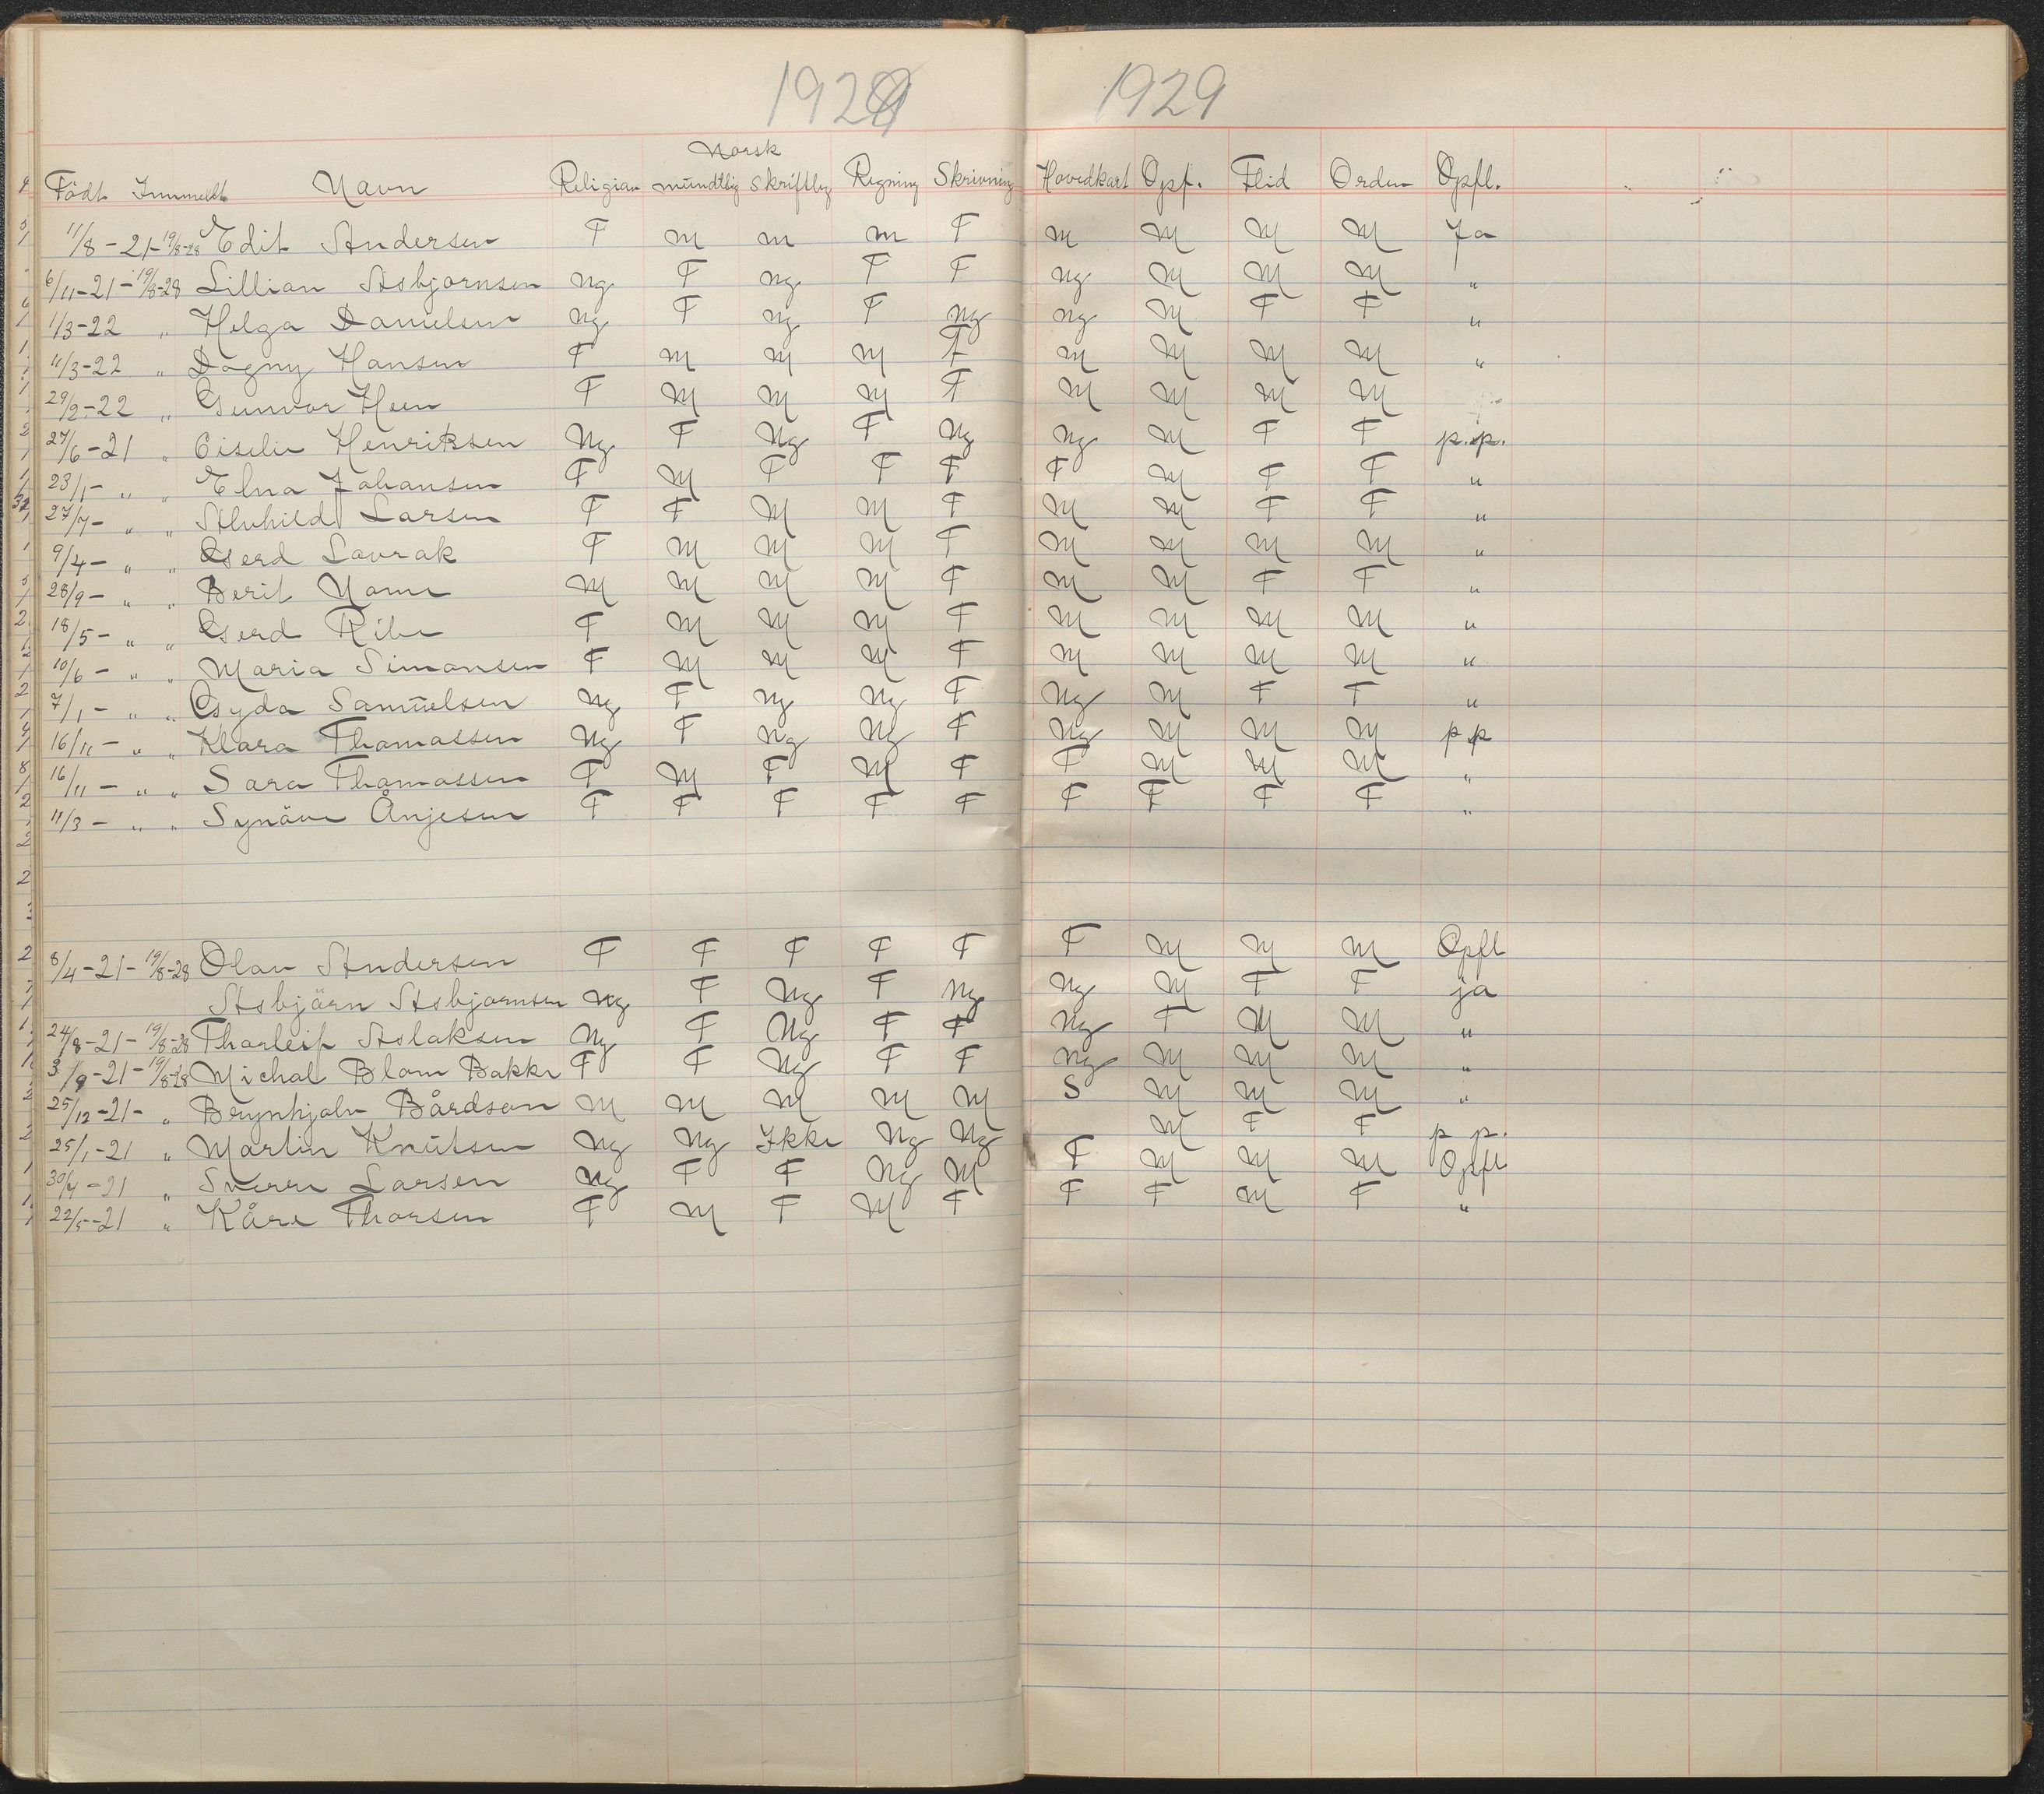 1929 1929
Norsk
Födt Innmeldt Navn Religion mundtlig Skriftlig Regning Skrivning Hovedkart Opf. Flid Orden Opfl.
11/8-21-19/8-28 Edit Andersen F M M M F M M M M Ja
6/11-21-19/8-28 Lillian Asbjørnsen Ng F Ng F F Ng M M M "
1/3-22 " Helga Danielsen Ng F Ng F Ng Ng M F F "
11/3-22 " Dagny Hansen F M M M F M M M M "
29/2-22 " Gunvor Heen F M M M F M M M M
27/6-21 " Eiselin Henriksen Ng F Ng F Ng Ng M F F p.p.
23/1- " " Elna Johansen F M F F F F M F F "
27/7- " " Alvhild Larsen F F M M F M M F F "
9/4- " " Gerd Lavrak F M M M F M M M M "
28/9- " " Berit Name M M M M F M M F F "
18/5- " " Gerd Ribe F M M M F M M M M "
10/6- " " Maria Simonsen F M M M F M M M M "
7/1- " " Gyda Samuelsen Ng F Ng Ng F Ng M F F "
16/11- " " Klara Thomassen Ng F Ng Ng F Ng M M M p.p
16/11- " " Sara Thomassen F M F M F F M M M "
11/3- " " Synäve Ånjesen F F F F F F F F F "
8/4-21-19/8-28 Olav Andersen F F F F F F M M M Opfl
Asbjörn Asbjørnsen Ng F Ng F Ng Ng M F F ja
24/8-21-19/8-28 Thorleif Aslaksen Ng F Ng F F Ng F M M "
3/9-21-19/8-28 Michal Blom Bakke F F Ng F F Ng M M M "
25/12-21- " Brynhjolv Bårdson M M M M M S M M M "
25/1-21 " Martin Knutsen Ng Ng Ikke Ng Ng M F F p p.
30/4-21 " Sverre Larsen Ng F F Ng M F M M M Opfl
22/5-21 " Kåre Thorsen F M F M F F F M F "